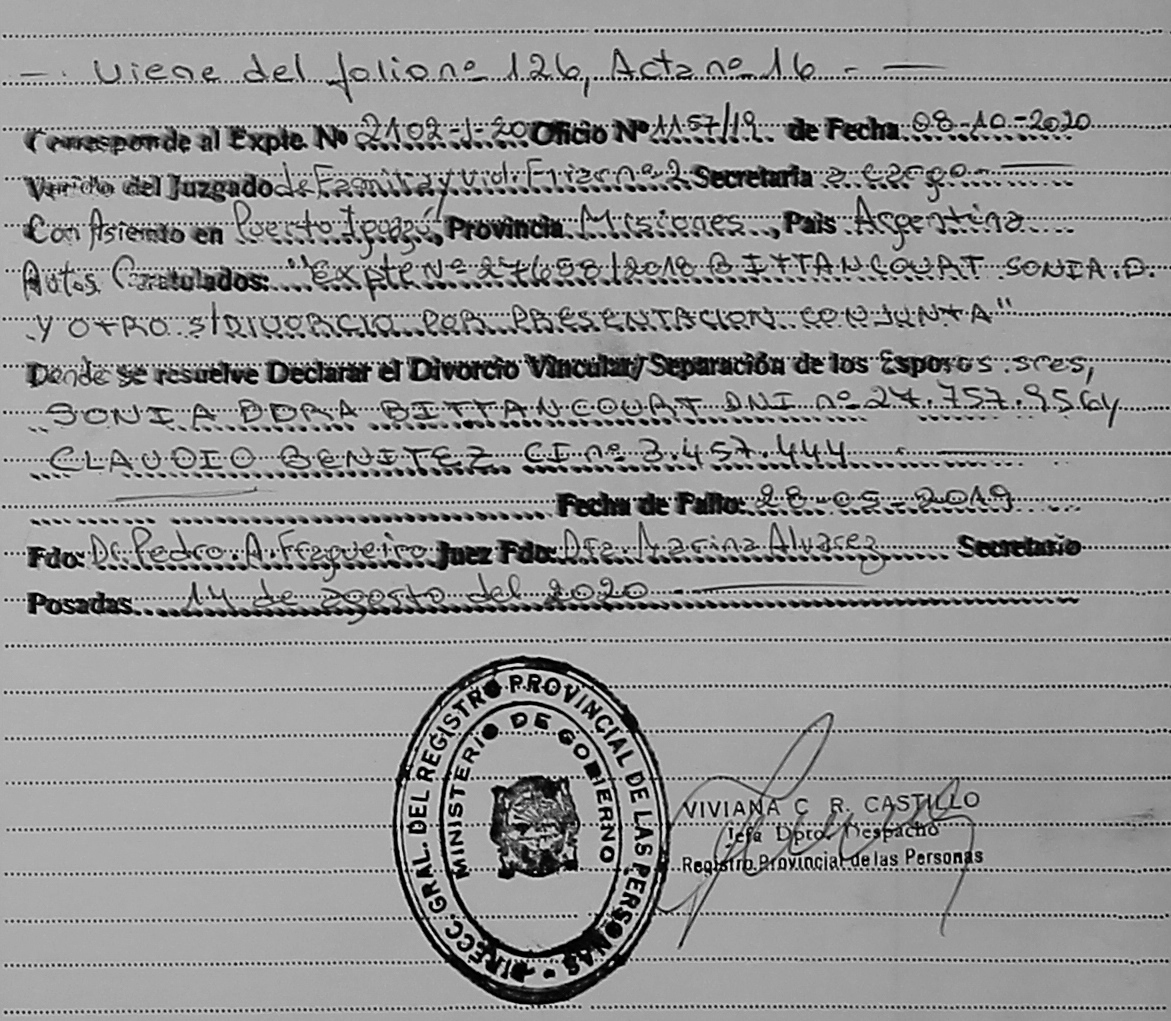 — . Viene del folio nº 126, Acta nº 16 . —
Corresponde al Expte. Nº 2102-J-20 Oficio Nº 1157/19. de Fecha 08-10-2020
Venido del Juzgado de Familia y Viol. Fliar nº 2 Secretaria a cargo —
Con Asiento en Puerto Iguazú, Provincia Misiones, Pais Argentina
Autos Caratulados: "Expte Nº 27658/2018 BITTANCOURT SONIA.D.
Y OTRO S/DIVORCIO POR PRESENTACION CONJUNTA"
Donde se resuelve Declarar el Divorcio Vincular/Separación de los Esposos sres,
SONIA DORA BITTANCOURT DNI nº 27.757.956 y
CLAUDIO BENITEZ CI nº 3.457.444 —
Fecha de Fallo: 28-05-2019
Fdo: Dr Pedro A. Fragueiro Juez Fdo: Dra. Marina Alvarez Secretario
Posadas 14 de agosto del 2020 —
DIRECC. GRAL. DEL REGISTRO PROVINCIAL DE LAS PERSONAS
MINISTERIO DE GOBIERNO
VIVIANA C R. CASTILLO
Jefa Dpto. Despacho
Registro Provincial de las Personas